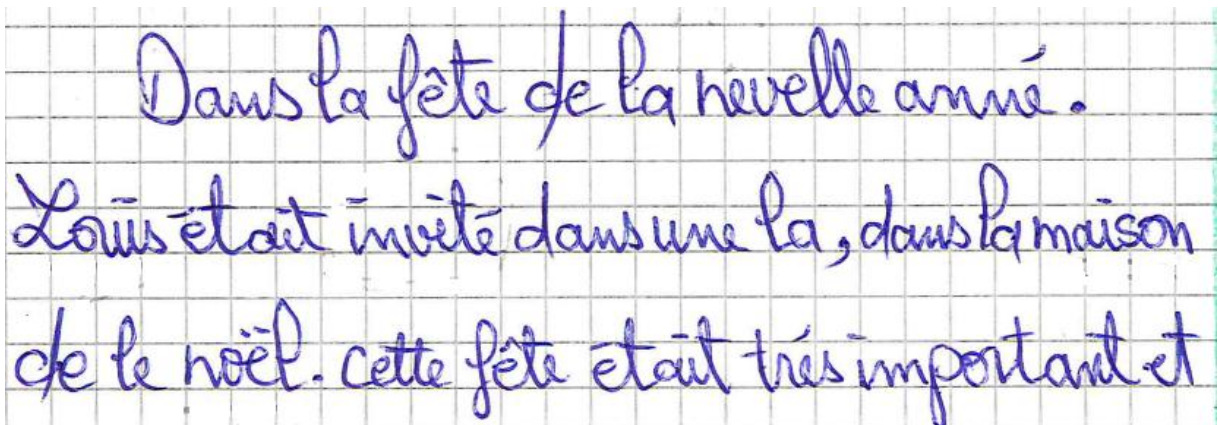 Dans la fête de la nevelle anné.
Louis était invité dans une la, dans la maison
de le noël. cette fête était trés important et